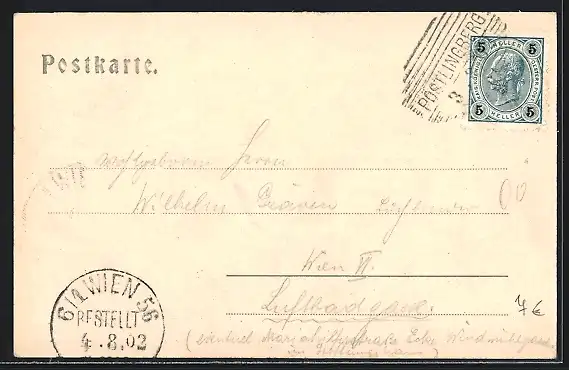 Postkarte.
PÖSTLINGBERG
3
5 HELLER 5
5 HELLER 5
Wohlgeborn Herrn
Wilhelm
Wien VI.
Luftbadgasse
(eventuel Mariahilferstraße Ecke Windmühlgasse
7€
6/1 WIEN 56
BESTELLT
4.8.02